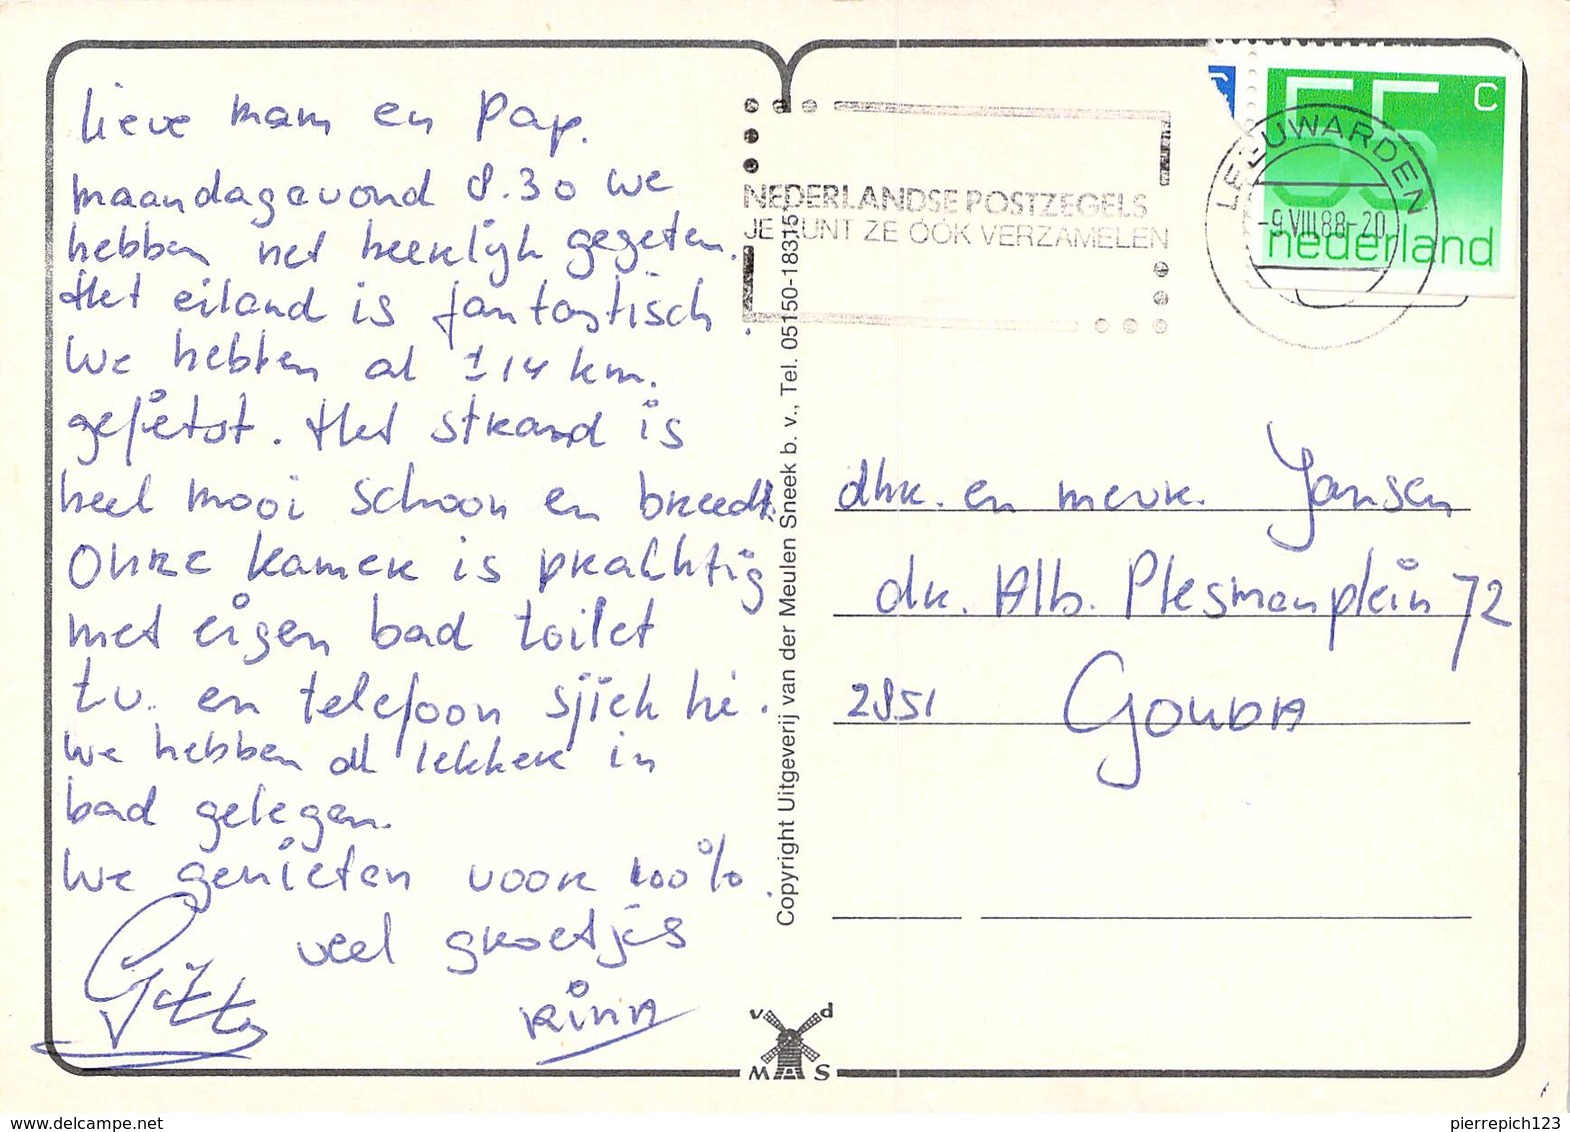 lieve mam en Pap.
maandagavond 8.30 we
hebben net heerlijk gegeten.
Het eiland is fantastisch.
We hebben al 114 km.
gefietst. Het strand is
heel mooi schoon en breed.
Onze kamer is prachtig
met eigen bad toilet
t.v. en telefoon sjiek hè.
We hebben al lekker in
bad gelegen.
We genieten voor 100%.
veel groetjes
Rinna
Copyright Uitgeverij van der Meulen Sneek b. v., Tel. 05150-18315
v d
M A S
NEDERLANDSE POSTZEGELS
JE KUNT ZE OOK VERZAMELEN
55 c
nederland
LEEUWARDEN
-9.VIII.88-20
dhr. en mevr. Jansen
dr. Alb. Plesmanplein 72
2851 GOUDA
pierrepich123